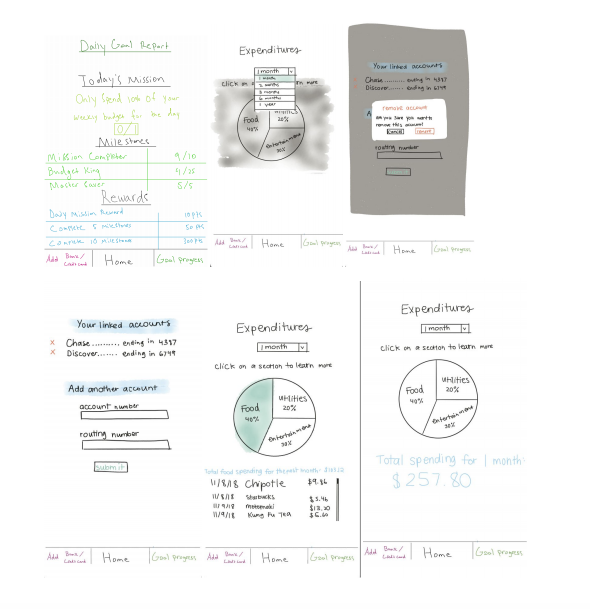 Daily Goal Report
Today's Mission
Only spend 10% of your
weekly budget for the day
0/1
Milestones
Mission Completer 9/10
Budget King 4/25
Master Saver 5/5
Rewards
Daily Mission Reward 10 pts
Complete 5 milestones 50 pts
Complete 10 milestones 200 pts
Add Bank/
Home
Goal progress
Expenditures
1 month
1 month
2 months
3 months
6 months
1 year
click on
rn more
Food
40%
20%
Entertainment
30%
Add Bank/
Home
Goal progress
Your linked accounts
Chase......... ending in 4387
Discover...... ending in 6749
remove account
Are you sure you want to
remove this account?
cancel remove
routing number
Add Bank/
Home
Goal progress
Your linked accounts
x Chase.......... ending in 4387
x Discover....... ending in 6749
Add another account
account number
routing number
submit
Add Bank/
Home
Goal progress
Expenditures
1 month
click on a section to learn more
Food
40%
utilities
20%
Entertainment
30%
Total food spending for the past month:
11/8/18 Chipotle $9.86
11/8/18 Starbucks $5.46
11/9/18 $13.20
11/9/18 Kung Fu Tea $5.60
Add Bank/
Home
Goal progress
Expenditures
1 month
click on a section to learn more
Food
40%
utilities
20%
Entertainment
30%
Total spending for 1 month:
$257.80
Add Bank/
Home
Goal progress